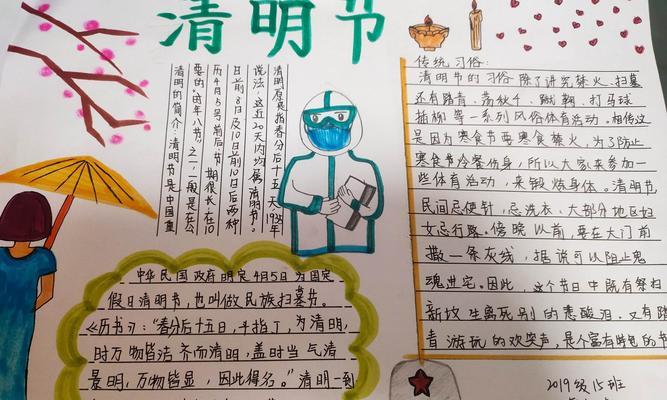 清明节
清明的简介：清明节是中国重
要的“时年八节”之一，一般是在公
历4月5号前后，节期很长，在10
日前8日及10日前10日后两种
说法，这近20天内均属清明节。
清明原是指春分后十五天，1935年
中华民国政府明定4月5日为国定
假日清明节，也叫做民族扫墓节。
《历书》：“春分后十五日，斗指丁，为清明，
时万物皆洁齐而清明，盖时当气清
景明，万物皆显，因此得名。”清明一到
传统习俗：
清明节的习俗除了讲究禁火、扫墓
还有踏青、荡秋千、蹴鞠、打马球
插柳等一系列风俗体育活动。相传这
是因为寒食节要寒食禁火，为了防止
寒食节冷餐伤身，所以大家来参加一
些体育活动，来锻炼身体。清明节，
民间忌使针，忌洗衣，大部分地区妇
女忌行路。傍晚以前，要在大门前
撒一条灰线，据说可以阻止鬼
魂进宅。因此，这个节日中既有祭扫
新坟生离死别的悲酸泪，又有踏
青游玩的欢笑声，是个富有特色的节
2019级15班